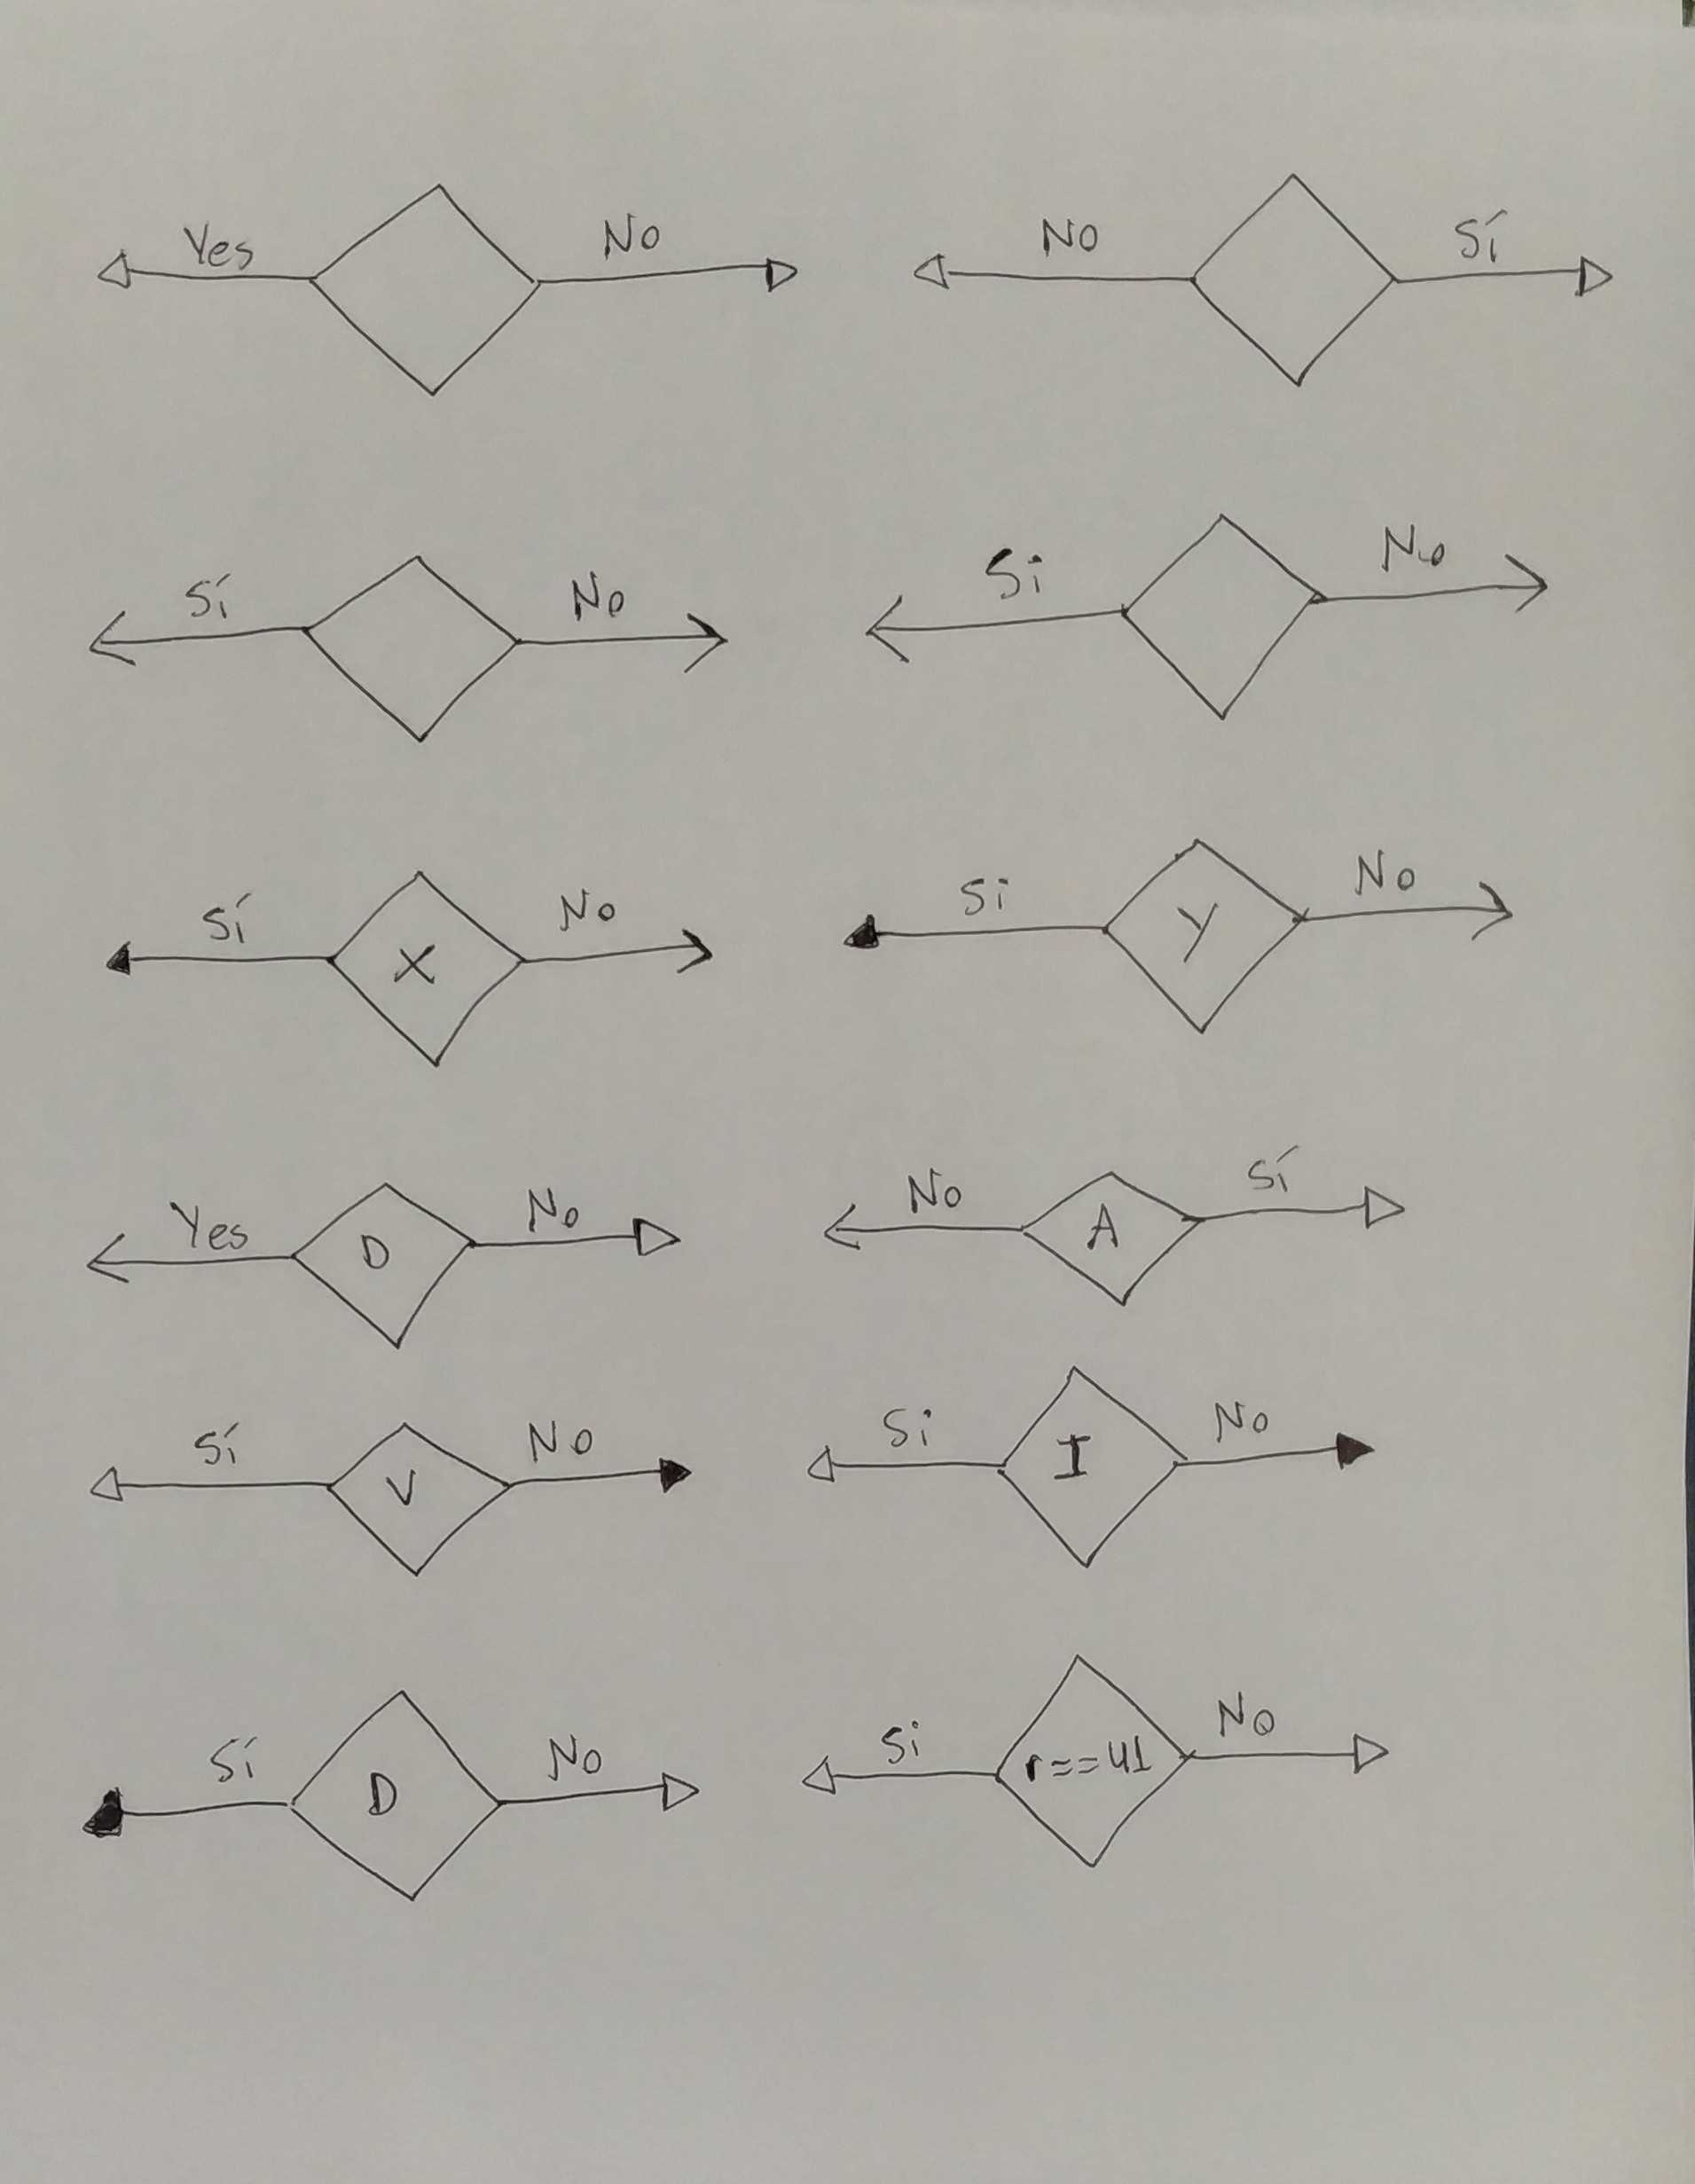 Yes No No Sí
Sí No Si No
Sí X No Si Y No
Yes D No No A Sí
Sí V No Si I No
Sí D No Si r==u1 No